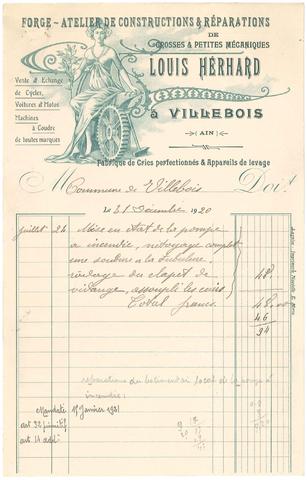 FORGE - ATELIER DE CONSTRUCTIONS & RÉPARATIONS
DE
GROSSES & PETITES MÉCANIQUES
LOUIS HERHARD
à VILLEBOIS
(AIN)
Vente & Echange
de Cycles,
Voitures & Motos
Machines
à Coudre
de toutes marques
Fabrique de Crics perfectionnés & Appareils de levage
M Commune de Villebois Doit
Le 31 Décembre 1920
juillet 24 Mise en état de la pompe
à incendie, nettoyage complet
une soudure à la
rodage du clapet de
vidange, assoupli les cuirs 48
Total francs 48
46
94
réparations du bâtiment local de la pompe à
incendie
Mandaté 1 janvier 1921
art 32 primitif
art 14 addl